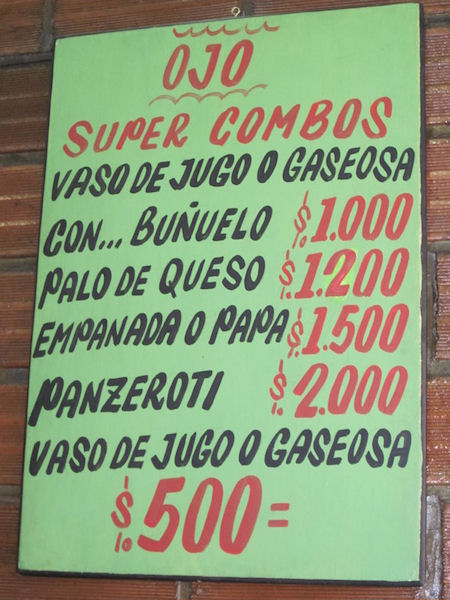 OJO
SUPER COMBOS
VASO DE JUGO O GASEOSA
CON... BUÑUELO $1.000
PALO DE QUESO $1.200
EMPANADA O PAPA $1.500
PANZEROTI $2.000
VASO DE JUGO O GASEOSA
$500=